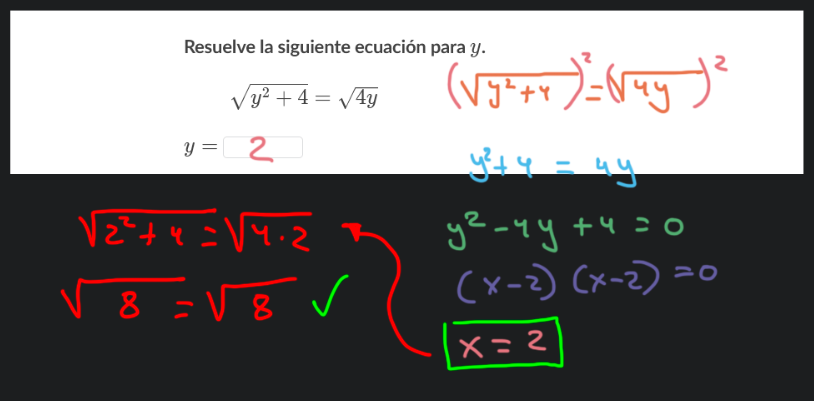 Resuelve la siguiente ecuación para y.
√(y² + 4) = √(4y)
y = 2
(√(y²+4))² = (√(4y))²
y²+4 = 4y
y² - 4y + 4 = 0
(x-2) (x-2) = 0
x = 2
√(2²+4) = √(4·2)
√8 = √8 ✓